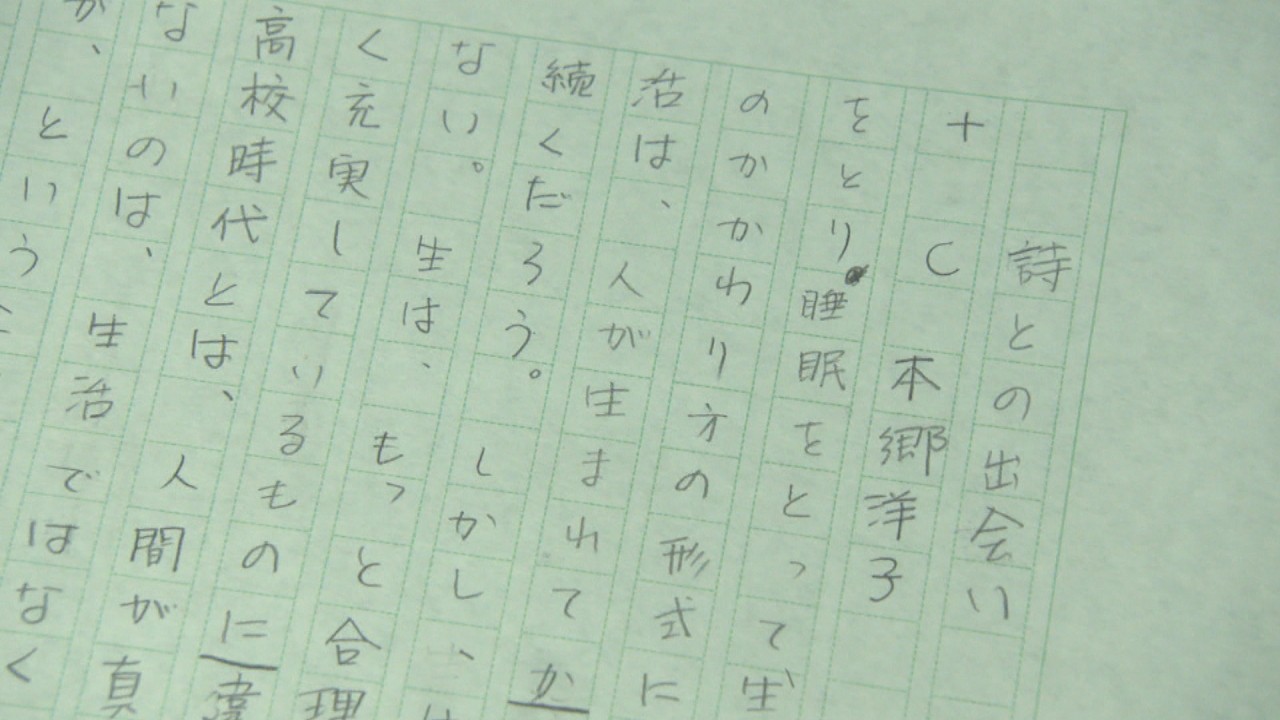 詩との出会い
＋ C 本郷洋子
をとり睡眠をとって生
のかかわり方の形式に
活は、人が生まれてか
続くだろう。しかし、
ない。生は、もっと合理
く充実しているものに違
高校時代とは、人間が真
ないのは、生活ではなく
が、という